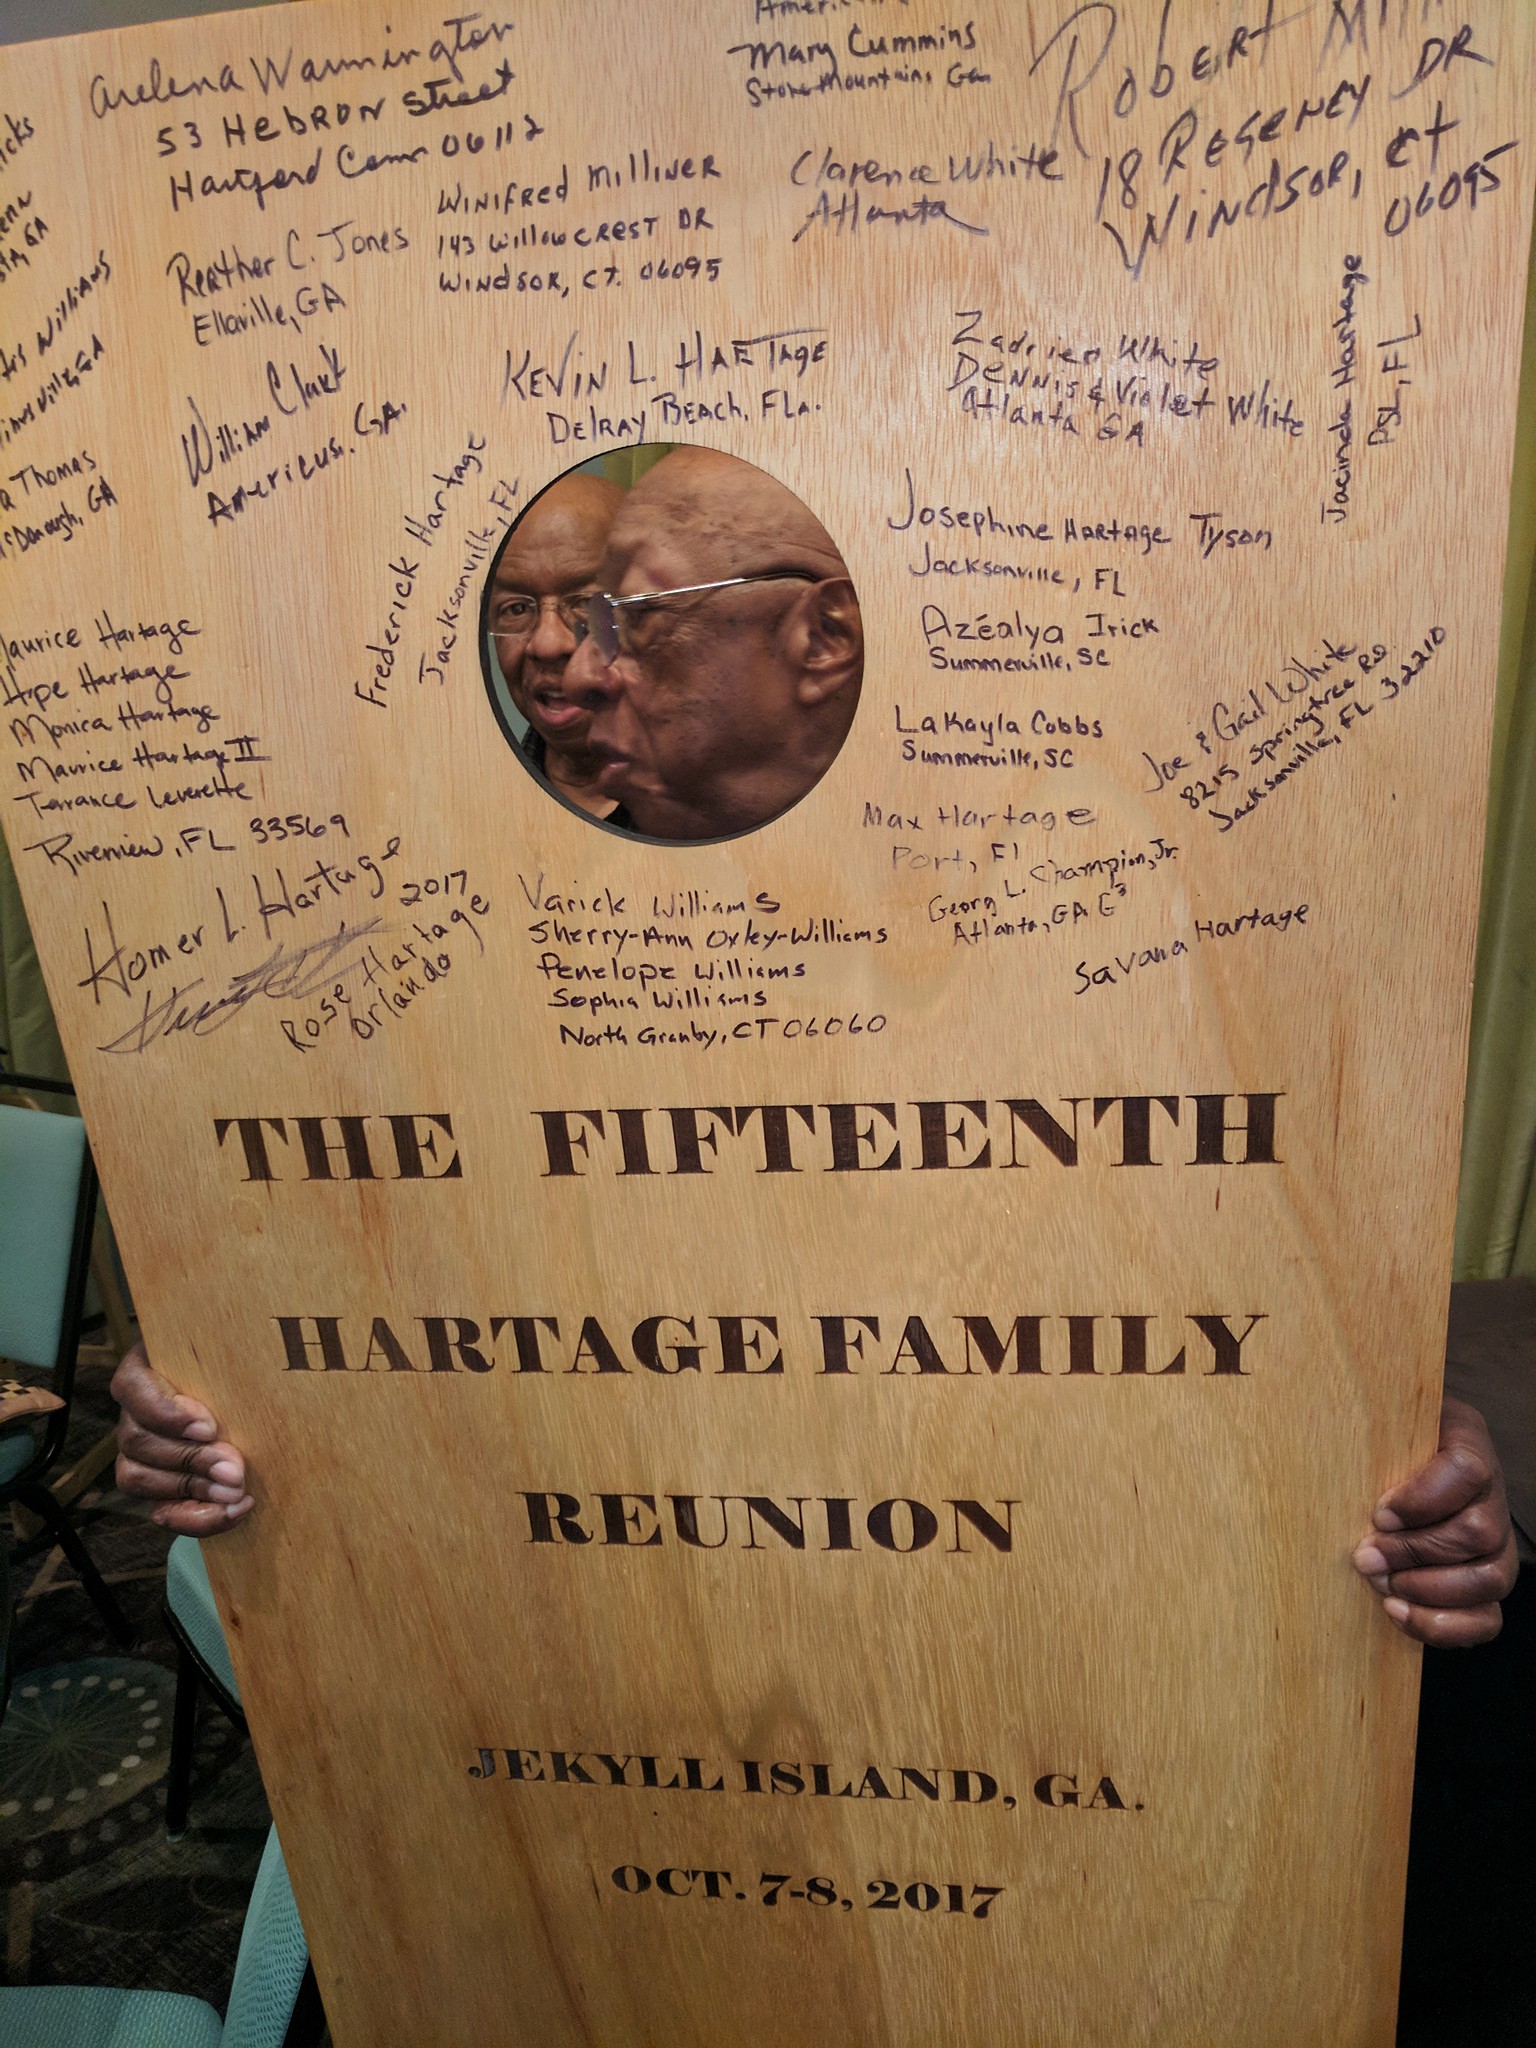 Mary Cummins
Stone Mountain, Ga
Robert
18 REGENEY DR
WINdSOR, Ct
06095
Arelena Warmington
53 HEBRON Street
Hartford Conn 06112
WINIFREd MIllINER
143 WillowCREST DR
WINdSOR, CT. 06095
Clarence White
Atlanta
Reather C. Jones
Ellaville, GA
William Clark
Americus. GA.
Thomas
McDonough, GA
KEVIN L. HARTAGE
DElRAY BEACH, FLA.
Zadrien White
DENNIS & Violet White
Atlanta GA
Jacinda Hartage
PSL, FL
Frederick Hartage
Jacksonville, FL
Josephine HARTAGE Tyson
Jacksonville, FL
Azéalya Irick
Summerville, SC
LaKayla Cobbs
Summerville, SC
Joe & Gail White
8215 Springtree RD.
Jacksonville, FL 32210
Maurice Hartage
Hope Hartage
Monica Hartage
Maurice Hartage II
Terrance Leverette
Riverview, FL 33569
Max Hartage
Port, Fl
Georg L. Champion, Jr.
Atlanta, GA G³
Savana Hartage
Homer L. Hartage
2017
Rose Hartage
Orlando
Varick Williams
Sherry-Ann Oxley-Williams
Penelope Williams
Sophia Williams
North Granby, CT 06060
THE FIFTEENTH
HARTAGE FAMILY
REUNION
JEKYLL ISLAND, GA.
OCT. 7-8, 2017